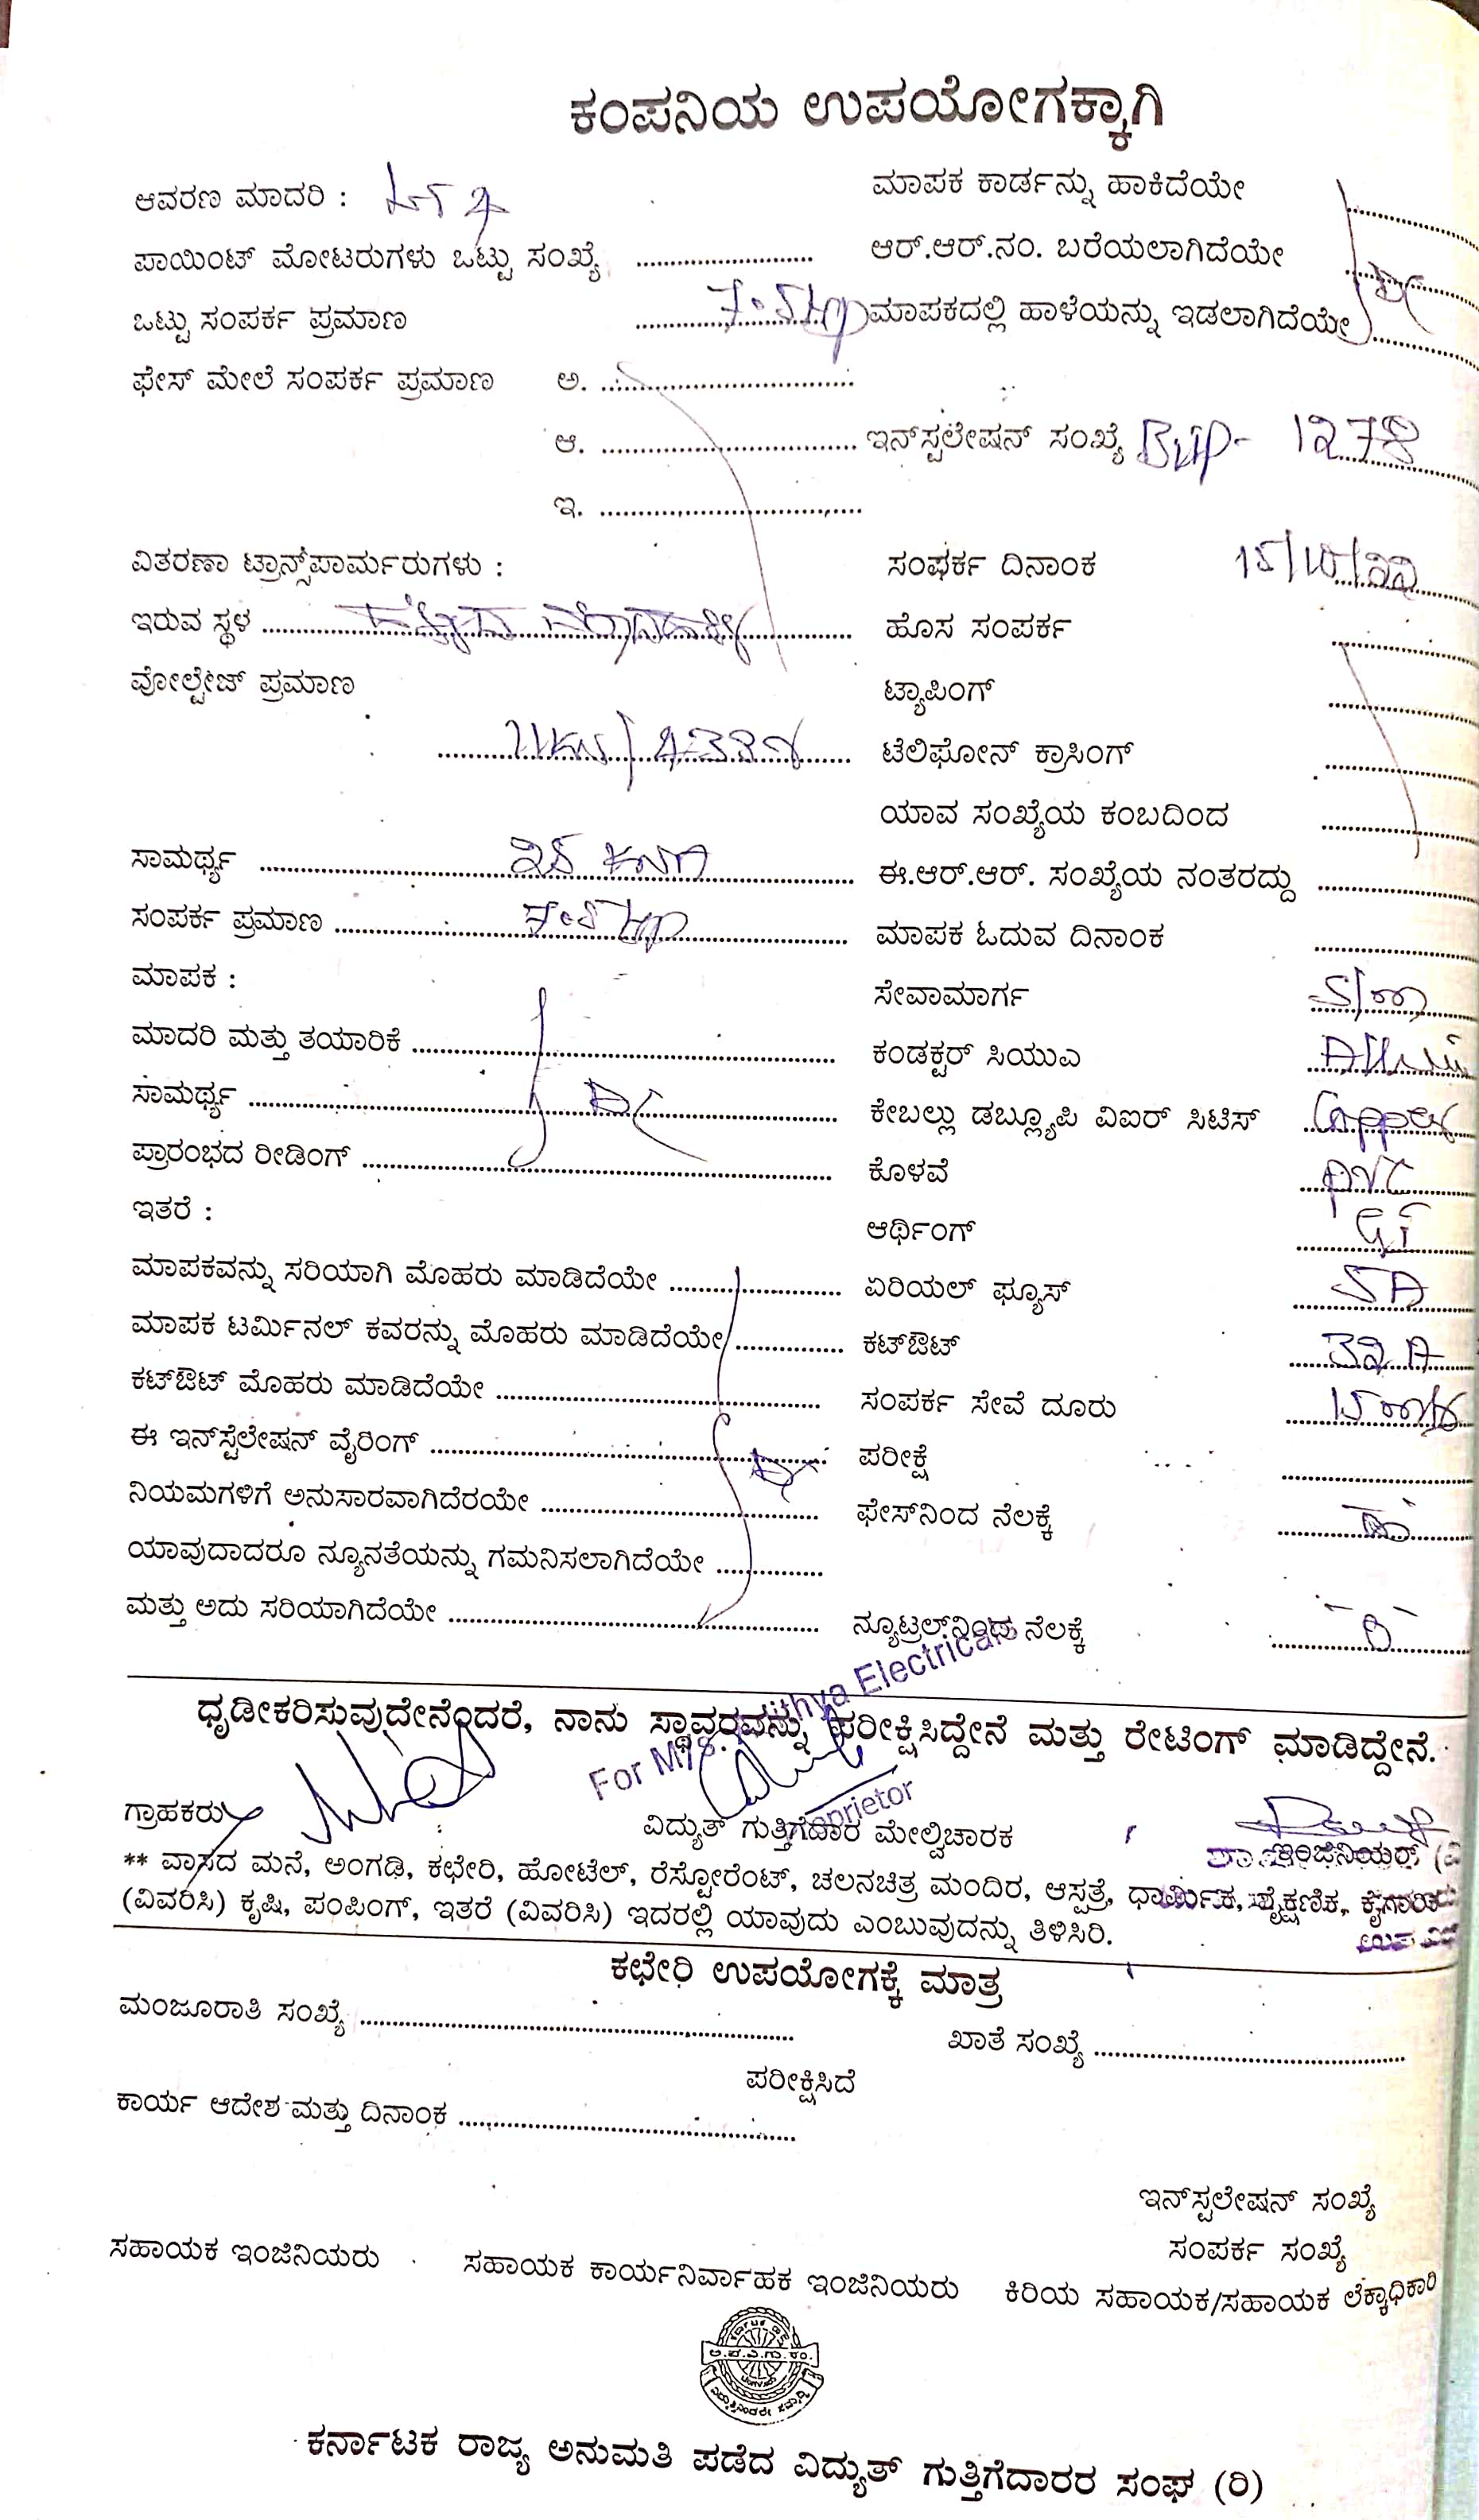 ಕಂಪನಿಯ ಉಪಯೋಗಕ್ಕಾಗಿ
ಆವರಣ ಮಾದರಿ :
ಮಾಪಕ ಕಾರ್ಡನ್ನು ಹಾಕಿದೆಯೇ
ಪಾಯಿಂಟ್ ಮೋಟರುಗಳು ಒಟ್ಟು ಸಂಖ್ಯೆ
ಆರ್.ಆರ್.ನಂ. ಬರೆಯಲಾಗಿದೆಯೇ
ಒಟ್ಟು ಸಂಪರ್ಕ ಪ್ರಮಾಣ 7.5 Hp
ಮಾಪಕದಲ್ಲಿ ಹಾಳೆಯನ್ನು ಇಡಲಾಗಿದೆಯೇ
ಫೇಸ್ ಮೇಲೆ ಸಂಪರ್ಕ ಪ್ರಮಾಣ ಅ.
ಆ.
ಇನ್‌ಸ್ಟಲೇಷನ್ ಸಂಖ್ಯೆ 1278
ಇ.
ವಿತರಣಾ ಟ್ರಾನ್ಸ್‌ಪಾರ್ಮರುಗಳು :
ಸಂಪರ್ಕ ದಿನಾಂಕ 15/10/22
ಇರುವ ಸ್ಥಳ
ಹೊಸ ಸಂಪರ್ಕ
ವೋಲ್ಟೇಜ್ ಪ್ರಮಾಣ
ಟ್ಯಾಪಿಂಗ್
11KV/
ಟೆಲಿಫೋನ್ ಕ್ರಾಸಿಂಗ್
ಯಾವ ಸಂಖ್ಯೆಯ ಕಂಬದಿಂದ
ಸಾಮರ್ಥ್ಯ 25 KVA
ಈ.ಆರ್.ಆರ್. ಸಂಖ್ಯೆಯ ನಂತರದ್ದು
ಸಂಪರ್ಕ ಪ್ರಮಾಣ 7.5 Hp
ಮಾಪಕ ಓದುವ ದಿನಾಂಕ
ಮಾಪಕ :
ಸೇವಾಮಾರ್ಗ
ಮಾದರಿ ಮತ್ತು ತಯಾರಿಕೆ
ಕಂಡಕ್ಟರ್ ಸಿಯುಎ
ಸಾಮರ್ಥ್ಯ
ಕೇಬಲ್ಲು ಡಬ್ಲ್ಯೂಪಿ ವಿಐರ್ ಸಿಟಿಸ್ Copper
ಪ್ರಾರಂಭದ ರೀಡಿಂಗ್
ಕೊಳವೆ PVC
ಇತರೆ :
ಆರ್ಥಿಂಗ್ GI
ಮಾಪಕವನ್ನು ಸರಿಯಾಗಿ ಮೊಹರು ಮಾಡಿದೆಯೇ
ಏರಿಯಲ್ ಫ್ಯೂಸ್ 5A
ಮಾಪಕ ಟರ್ಮಿನಲ್ ಕವರನ್ನು ಮೊಹರು ಮಾಡಿದೆಯೇ
ಕಟ್‌ಔಟ್ 32 A
ಕಟ್‌ಔಟ್ ಮೊಹರು ಮಾಡಿದೆಯೇ
ಸಂಪರ್ಕ ಸೇವೆ ದೂರು
ಈ ಇನ್‌ಸ್ಟೆಲೇಷನ್ ವೈರಿಂಗ್
ಪರೀಕ್ಷೆ
ನಿಯಮಗಳಿಗೆ ಅನುಸಾರವಾಗಿದೆರಯೇ
ಫೇಸ್‌ನಿಂದ ನೆಲಕ್ಕೆ
ಯಾವುದಾದರೂ ನ್ಯೂನತೆಯನ್ನು ಗಮನಿಸಲಾಗಿದೆಯೇ
ಮತ್ತು ಅದು ಸರಿಯಾಗಿದೆಯೇ
ನ್ಯೂಟ್ರಲ್‌ನಿಂದ ನೆಲಕ್ಕೆ
ಧೃಡೀಕರಿಸುವುದೇನೆಂದರೆ, ನಾನು ಸ್ಥಾವರವನ್ನು ಪರೀಕ್ಷಿಸಿದ್ದೇನೆ ಮತ್ತು ರೇಟಿಂಗ್ ಮಾಡಿದ್ದೇನೆ.
For M/s. Electricals
ಗ್ರಾಹಕರು
ವಿದ್ಯುತ್ ಗುತ್ತಿಗೆದಾರ ಮೇಲ್ವಿಚಾರಕ
ಇಂಜಿನಿಯರ್
** ವಾಸದ ಮನೆ, ಅಂಗಡಿ, ಕಛೇರಿ, ಹೋಟೆಲ್, ರೆಸ್ಟೋರೆಂಟ್, ಚಲನಚಿತ್ರ ಮಂದಿರ, ಆಸ್ಪತ್ರೆ, ಧಾರ್ಮಿಕ, ಶೈಕ್ಷಣಿಕ, ಕೈಗಾರಿಕೆ
(ವಿವರಿಸಿ) ಕೃಷಿ, ಪಂಪಿಂಗ್, ಇತರೆ (ವಿವರಿಸಿ) ಇದರಲ್ಲಿ ಯಾವುದು ಎಂಬುವುದನ್ನು ತಿಳಿಸಿರಿ.
ಕಛೇರಿ ಉಪಯೋಗಕ್ಕೆ ಮಾತ್ರ
ಮಂಜೂರಾತಿ ಸಂಖ್ಯೆ
ಖಾತೆ ಸಂಖ್ಯೆ
ಪರೀಕ್ಷಿಸಿದೆ
ಕಾರ್ಯ ಆದೇಶ ಮತ್ತು ದಿನಾಂಕ
ಇನ್‌ಸ್ಟಲೇಷನ್ ಸಂಖ್ಯೆ
ಸಂಪರ್ಕ ಸಂಖ್ಯೆ
ಸಹಾಯಕ ಇಂಜಿನಿಯರು
ಸಹಾಯಕ ಕಾರ್ಯನಿರ್ವಾಹಕ ಇಂಜಿನಿಯರು
ಕಿರಿಯ ಸಹಾಯಕ/ಸಹಾಯಕ ಲೆಕ್ಕಾಧಿಕಾರಿ
ಕರ್ನಾಟಕ ರಾಜ್ಯ ಅನುಮತಿ ಪಡೆದ ವಿದ್ಯುತ್ ಗುತ್ತಿಗೆದಾರರ ಸಂಘ (ರಿ)